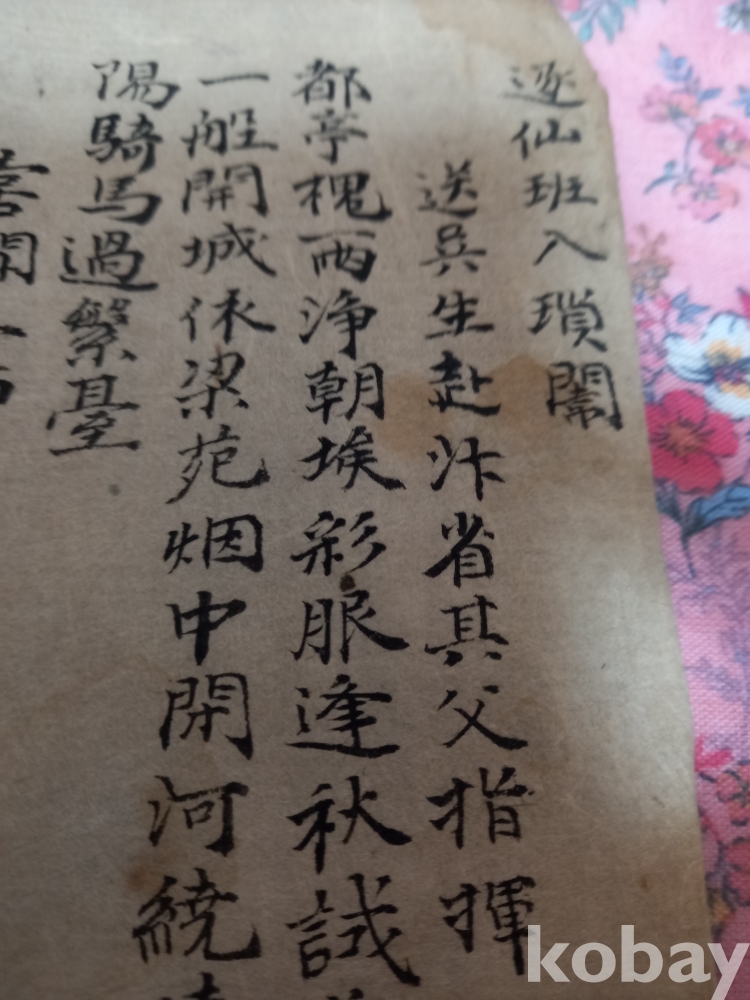 逐仙班入瑣闈
送吳生赴汴省其父指揮
都亭槐雨净朝埃彩服逢秋誠
一般開城依梁苑烟中開河繞
陽騎馬過繁臺
kobay